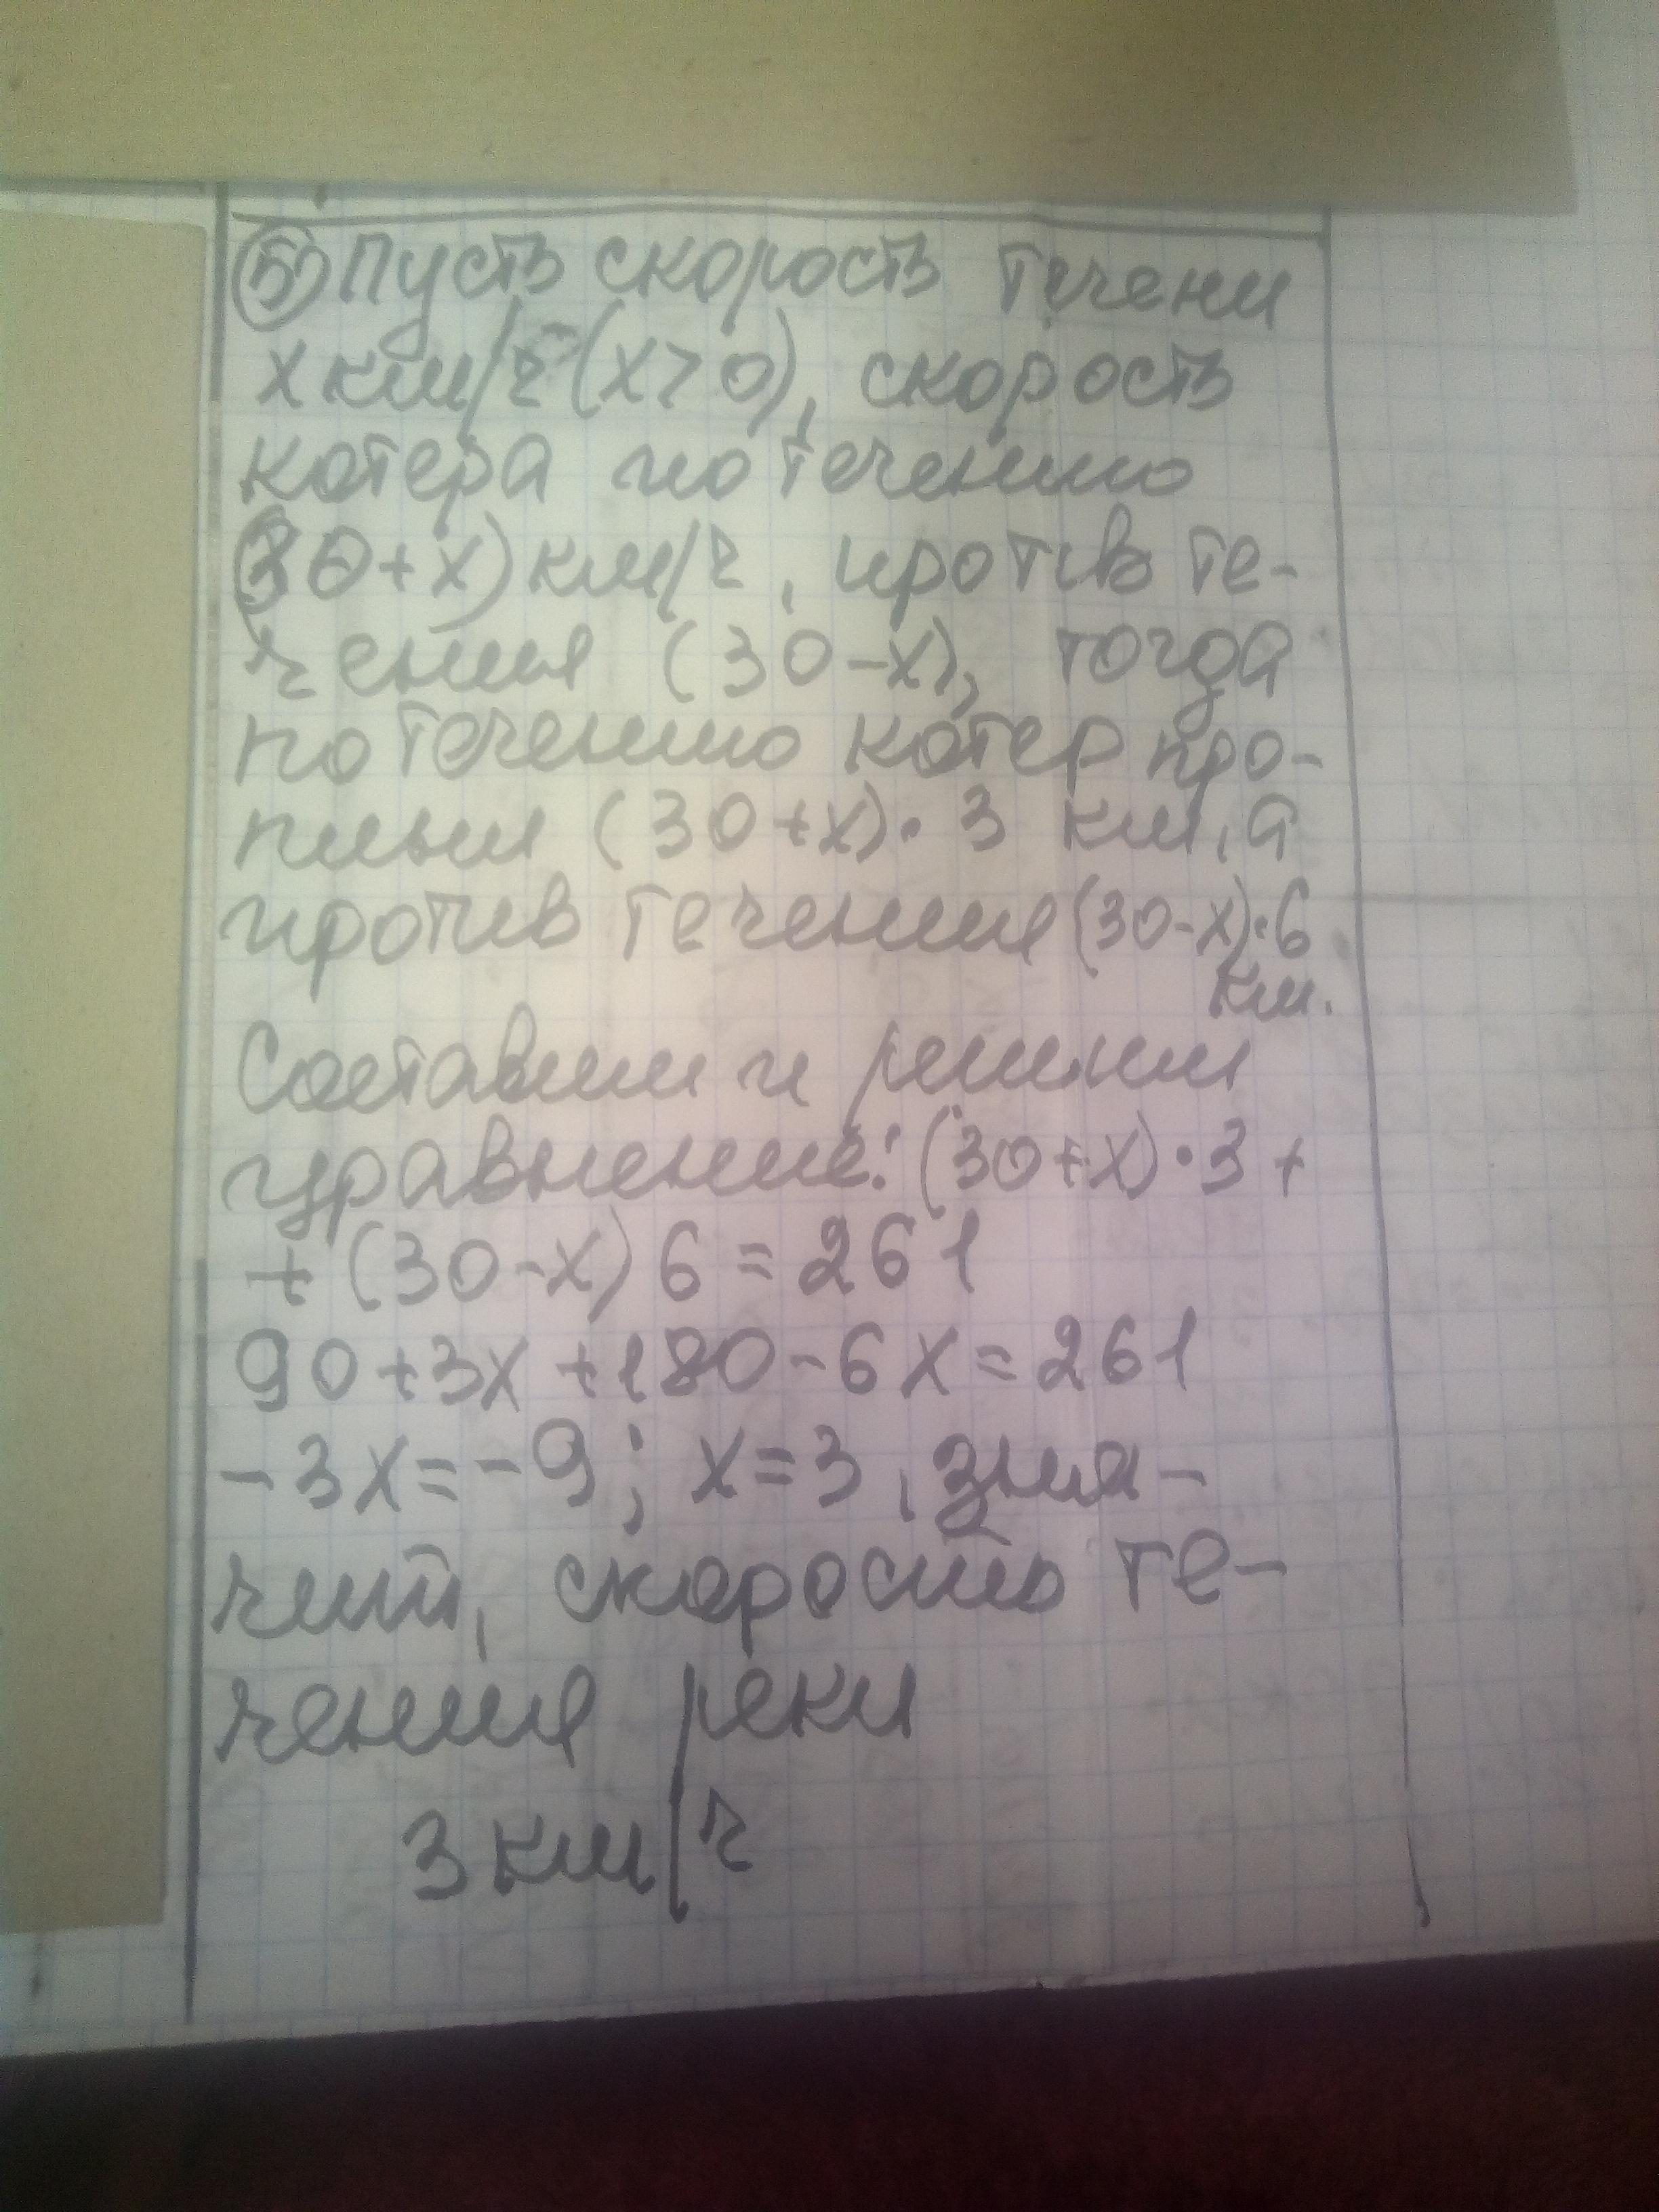 5) Пусть скорость течени
x км/ч (x>0), скорость
катера по течению
(30+x) км/ч, против те-
чения (30-x), тогда
по течению катер про-
плыл (30+x)·3 км, а
против течения (30-x)·6
км.
Составим и решим
уравнение: (30+x)·3+
+(30-x)6=261
90+3x+180-6x=261
-3x=-9; x=3, зна-
чит, скорость те-
чения реки
3 км/ч